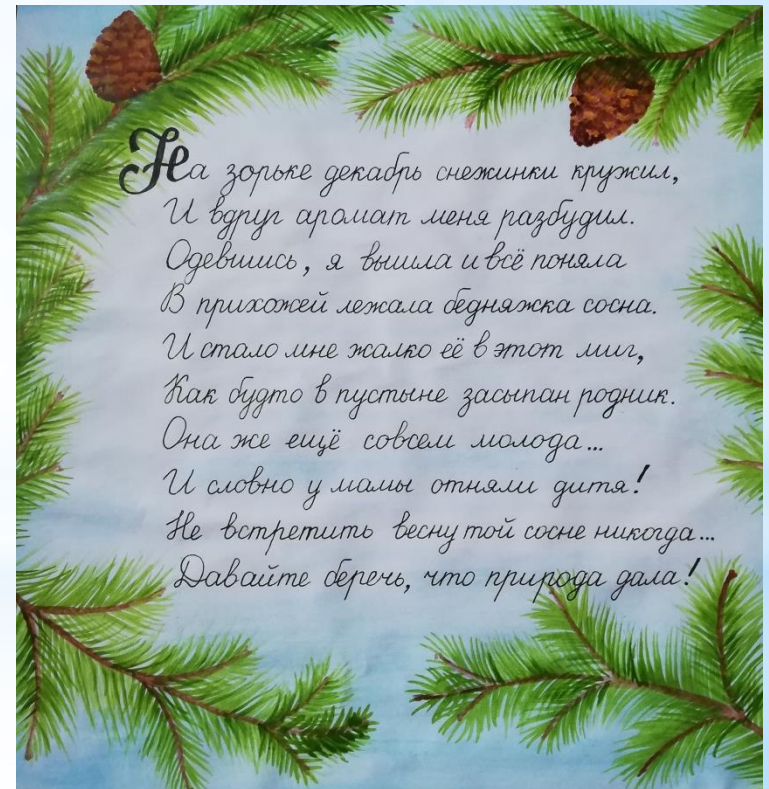 На зорьке декабрь снежинки кружил,
И вдруг аромат меня разбудил.
Одевшись, я вышла и всё поняла
В прихожей лежала бедняжка сосна.
И стало мне жалко её в этот миг,
Как будто в пустыне засыпан родник.
Она же ещё совсем молода...
И словно у мамы отняли дитя!
Не встретить весну той сосне никогда...
Давайте беречь, что природа дала!